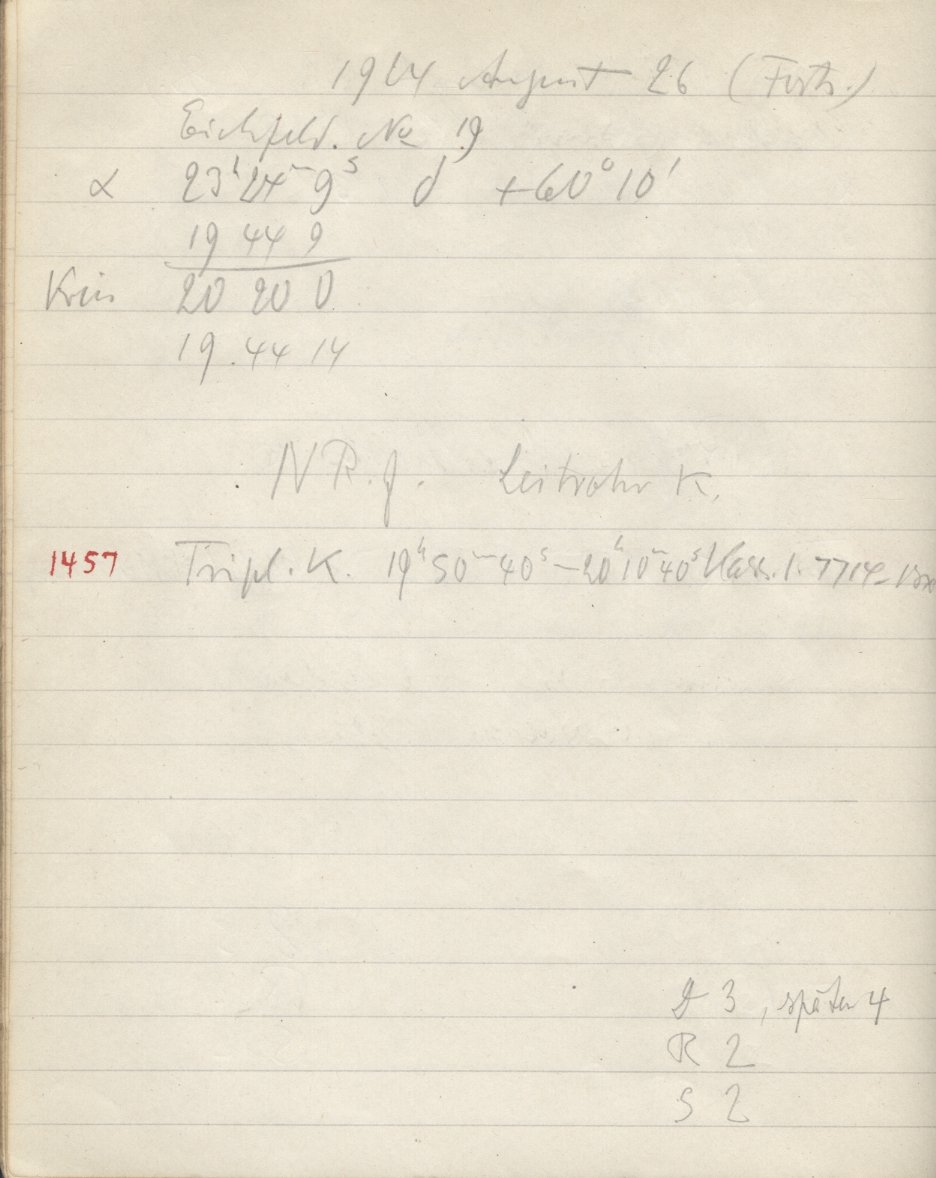 1924 August 26 (Forts.)
Eichfeld. No 19
α 23ʰ24ᵐ9ˢ δ +60°10'
19 44 9
Kreis 20 20 0
19.44 14
N R.g. Leitrohr K.
1457 Tripl. K. 19ʰ50ᵐ40ˢ–20ʰ10ᵐ40ˢ 7714
D 3, später 4
R 2
S 2